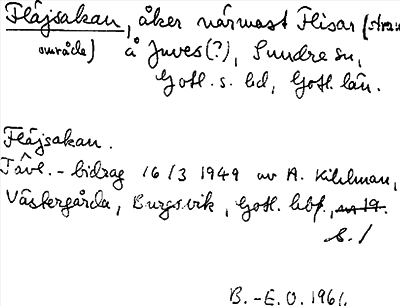 Fläjsakan, åker närmast Flisar (stran
område) å Juves(?), Sundre sn,
Gotl. s. hd, Gotl. län.
Fläjsakan.
Tävl.-bidrag 16/3 1949 av A. Kihlman,
Västergårda, Burgsvik, Gotl. bbf.,
B.-E. O. 1961.